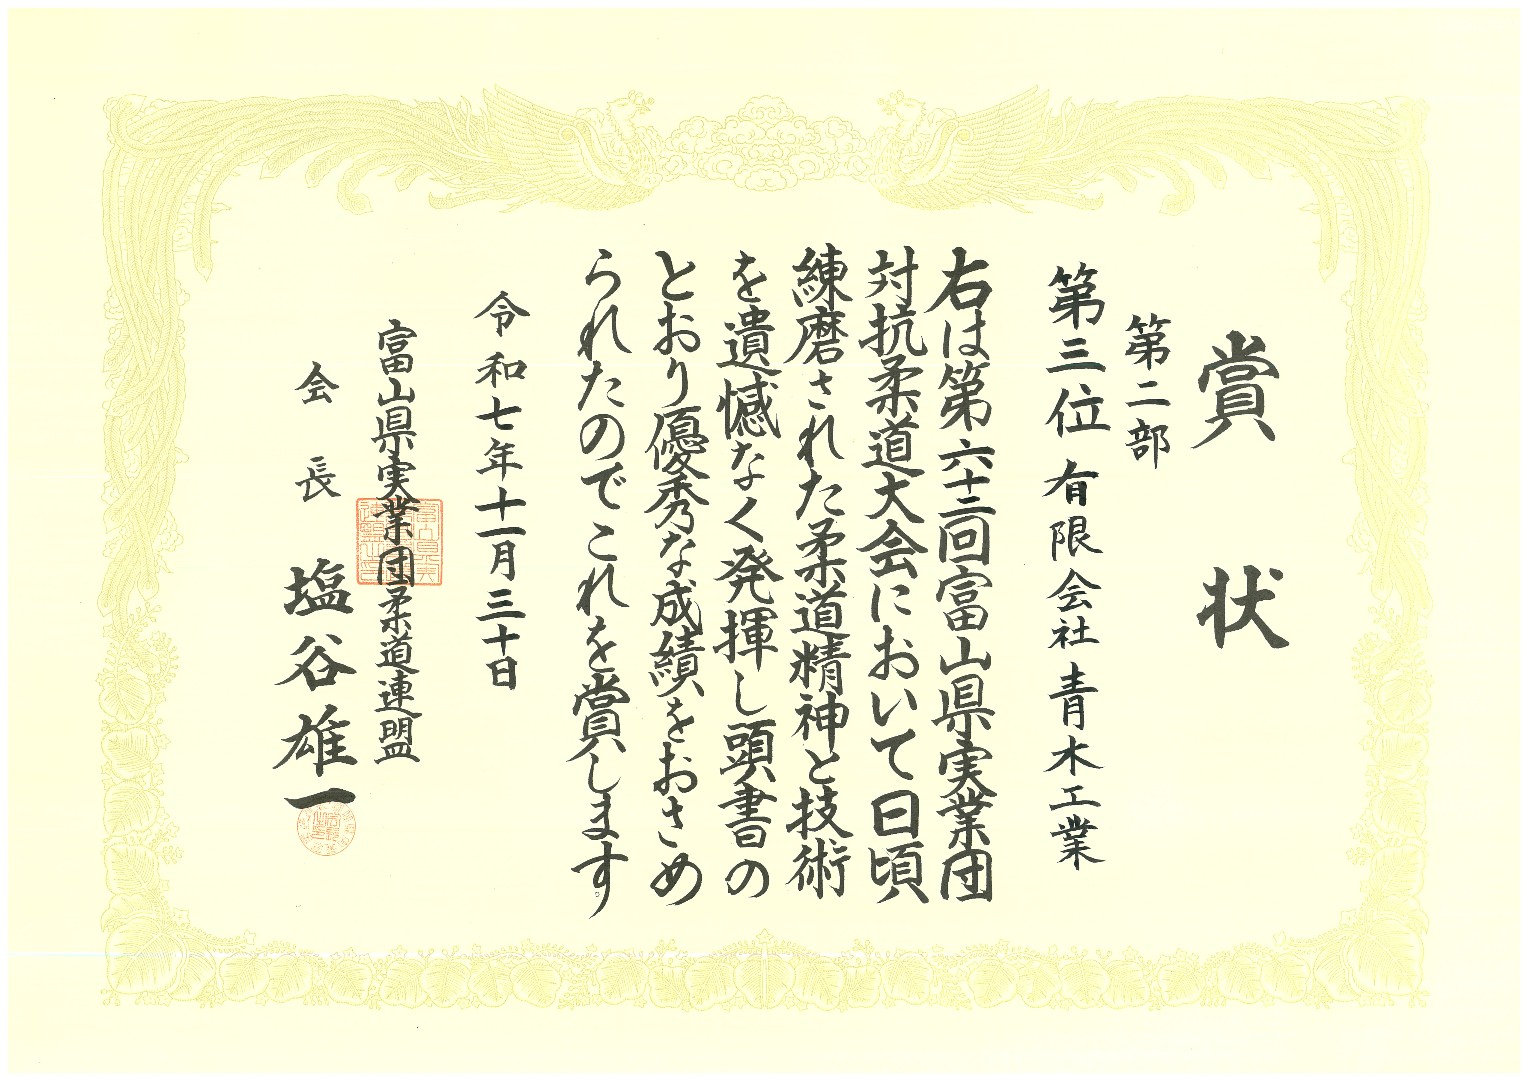 賞状
第二部
第三位 有限会社 青木工業
右は第六十三回富山県実業団
対抗柔道大会において日頃
練磨された柔道精神と技術
を遺憾なく発揮し頭書の
とおり優秀な成績をおさめ
られたのでこれを賞します
令和七年十一月三十日
富山県実業団柔道連盟
会長 塩谷雄一